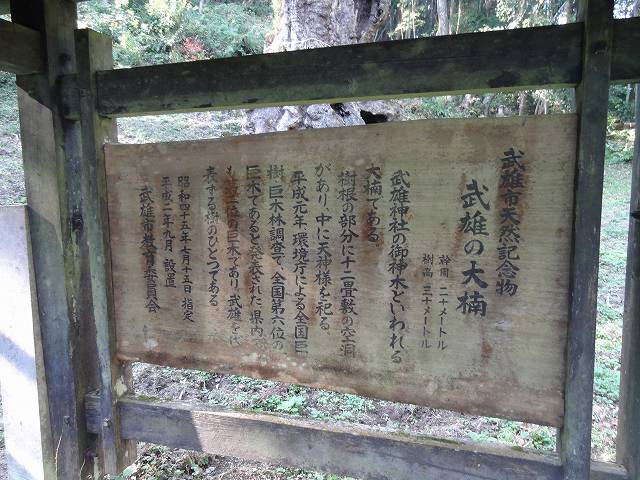 武雄市天然記念物
武雄の大楠
幹周 二十メートル
樹高 三十メートル
武雄神社の御神木といわれる
大楠である。
樹根の部分に十二畳敷の空洞
があり、中に天神様を祀る。
平成元年環境庁による全国巨
樹・巨木林調査で、全国第六位の
巨木であると発表された。県内で
も第一位の巨木であり、武雄を代
表する樹のひとつである。
昭和四十五年七月十五日 指定
平成二年九月 設置
武雄市教育委員会